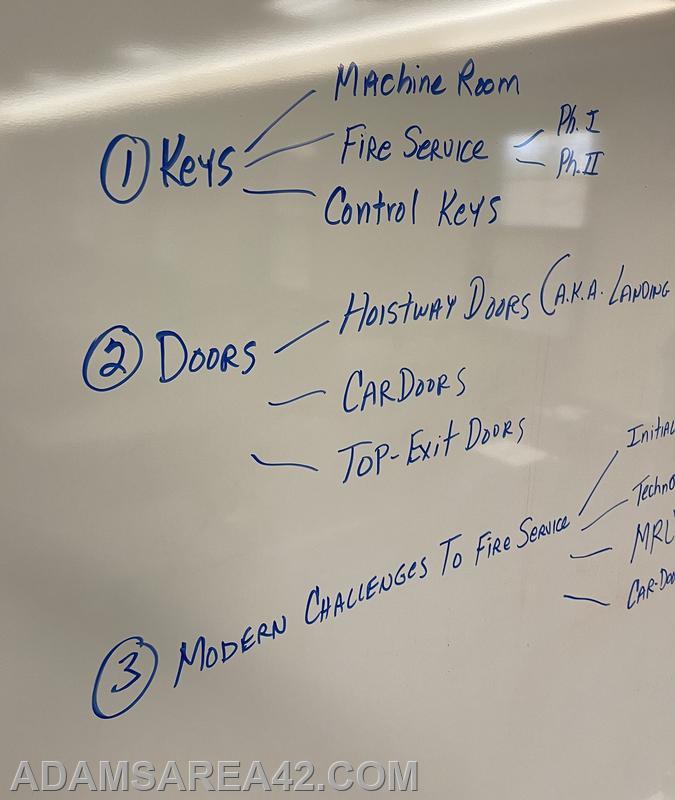 ① Keys
Machine Room
Fire Service
Ph. I
Ph. II
Control Keys
② Doors
Hoistway Doors (A.K.A. Landing
Car Doors
Top-Exit Doors
③ Modern Challenges To Fire Service
MRL
ADAMSAREA42.COM